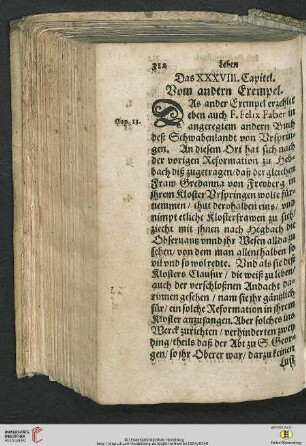 312 Leben
Das XXXVIII. Capitel.
Vom andern Exempel.
DAs ander Exempel erzehlt
eben auch F. Felix Faber in
Cap. 13.
angeregtem andern Buch
deß Schwabenlandt von Vrsprin-
gen. An diesem Ort hat sich nach
der vorigen Reformation zu Heg-
bach diß zugetragen/ daß der gleichen
Fraw Gredanna von Freyberg in
jhrem Kloster Vrspringen wolte für-
nemmen/ thut derohalben eins/ vnd
nimpt etliche Klosterfrawen zu sich/
ziecht mit jhnen nach Hegbach die
Obseruantz vnnd jhr Wesen allda zu
sehen/ von dem man allenthalben so
vil vnd so wol redte. Vnd als sie deß
Klosters Clausur/ die weiß zu leben/
auch der verschloßnen Andacht dar-
rinnen gesehen/ nam sie jhr gäntzlich
für/ ein solche Reformation in jhrem
Kloster anzufangen. Aber solches ins
Werck zurichten/ verhinderten zwey
ding/ theils daß der Abt zu S. Geor-
gen/ so jhr Oberer war/ darzu keinen
Lust